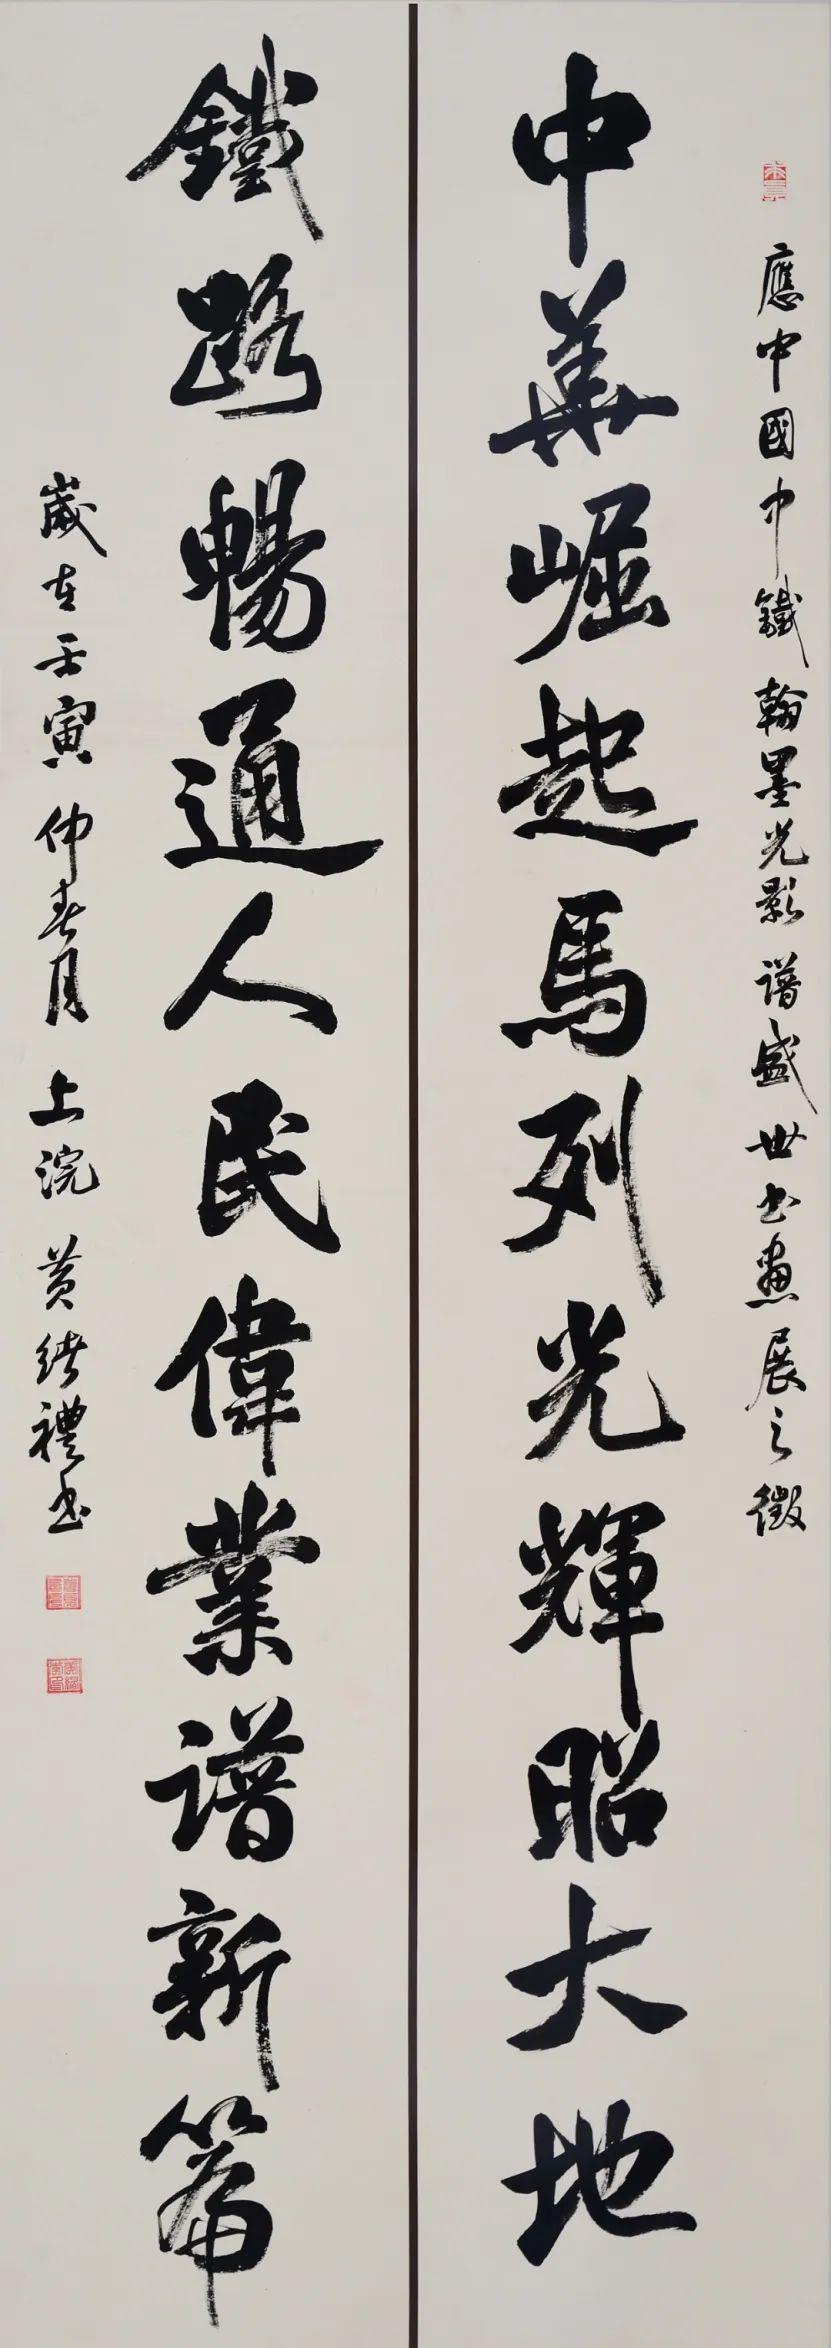 應中國中鐵翰墨光影譜盛世书畫展之徵
中華崛起馬列光輝昭大地
鐵路暢通人民偉業譜新篇
歲在壬寅仲春月上浣黄绪禮书